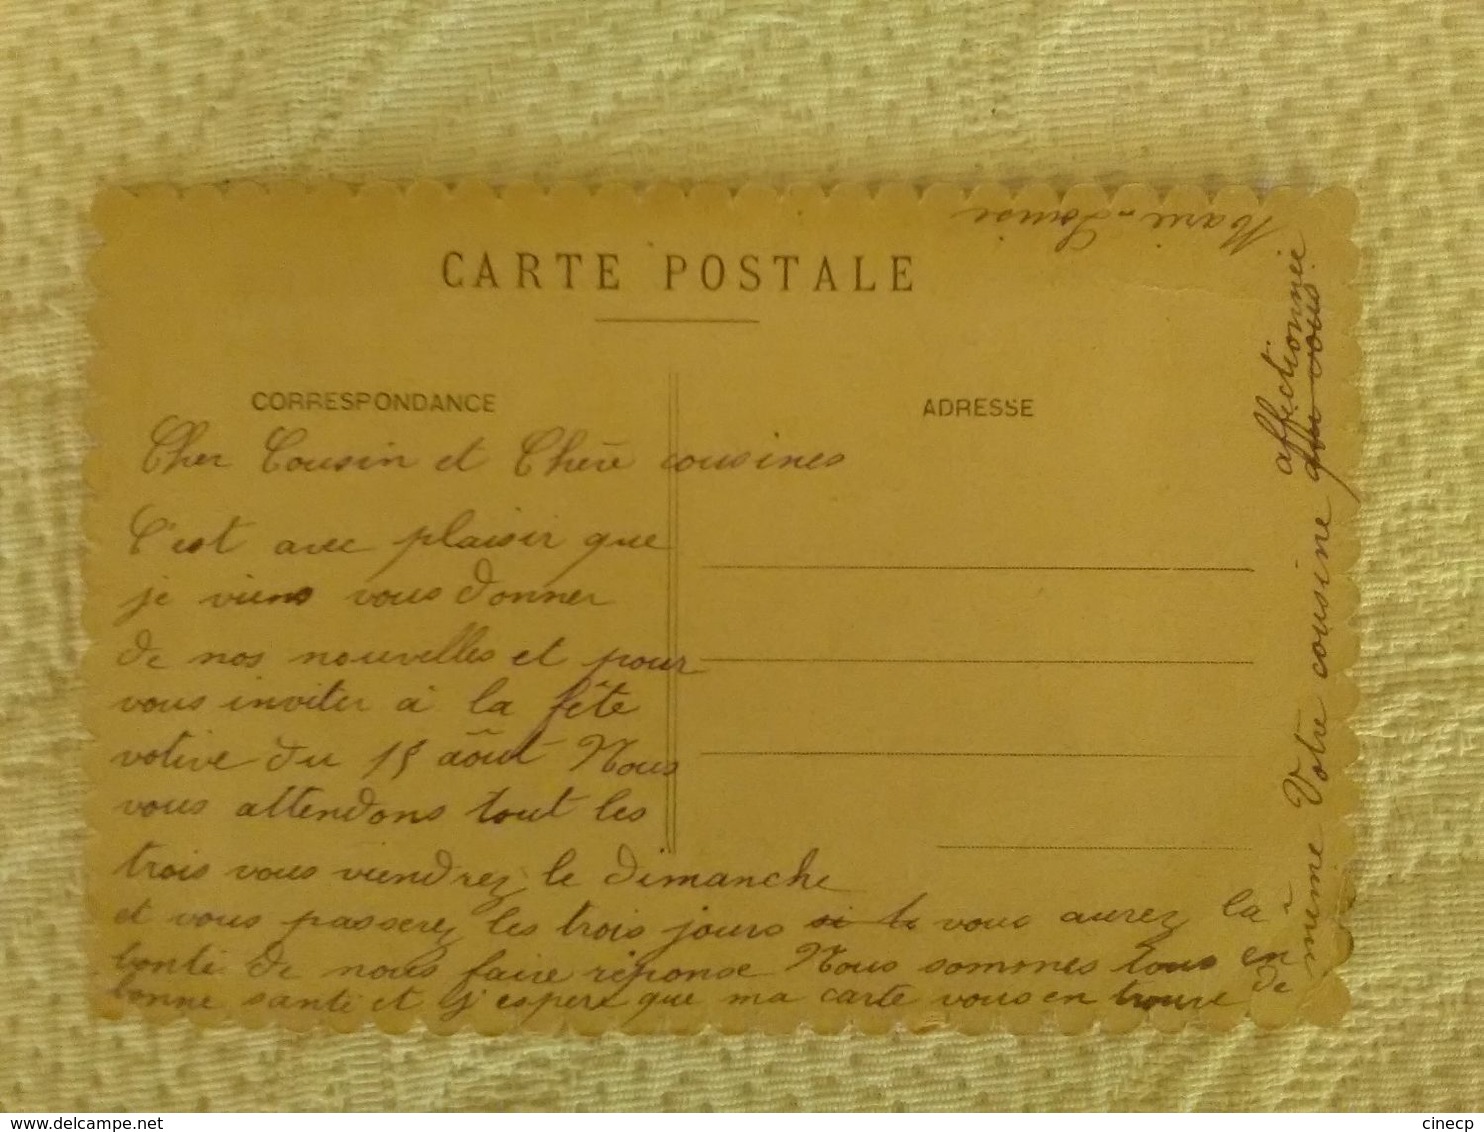 CARTE POSTALE
CORRESPONDANCE
ADRESSE
Cher Cousin et Chère cousines
C'est avec plaisir que
je viens vous donner
de nos nouvelles et pour
vous inviter à la fête
votive du 15 août Nous
vous attendons tout les
trois vous viendrez le dimanche
et vous passerez les trois jours si le vous aurez la
bonté de nous faire réponse Nous sommes tous en
bonne santé et j'espère que ma carte vous en trouve de
même Votre cousine qui vous
affectionnée
Marie-Louise
delcampe.net
cinecp